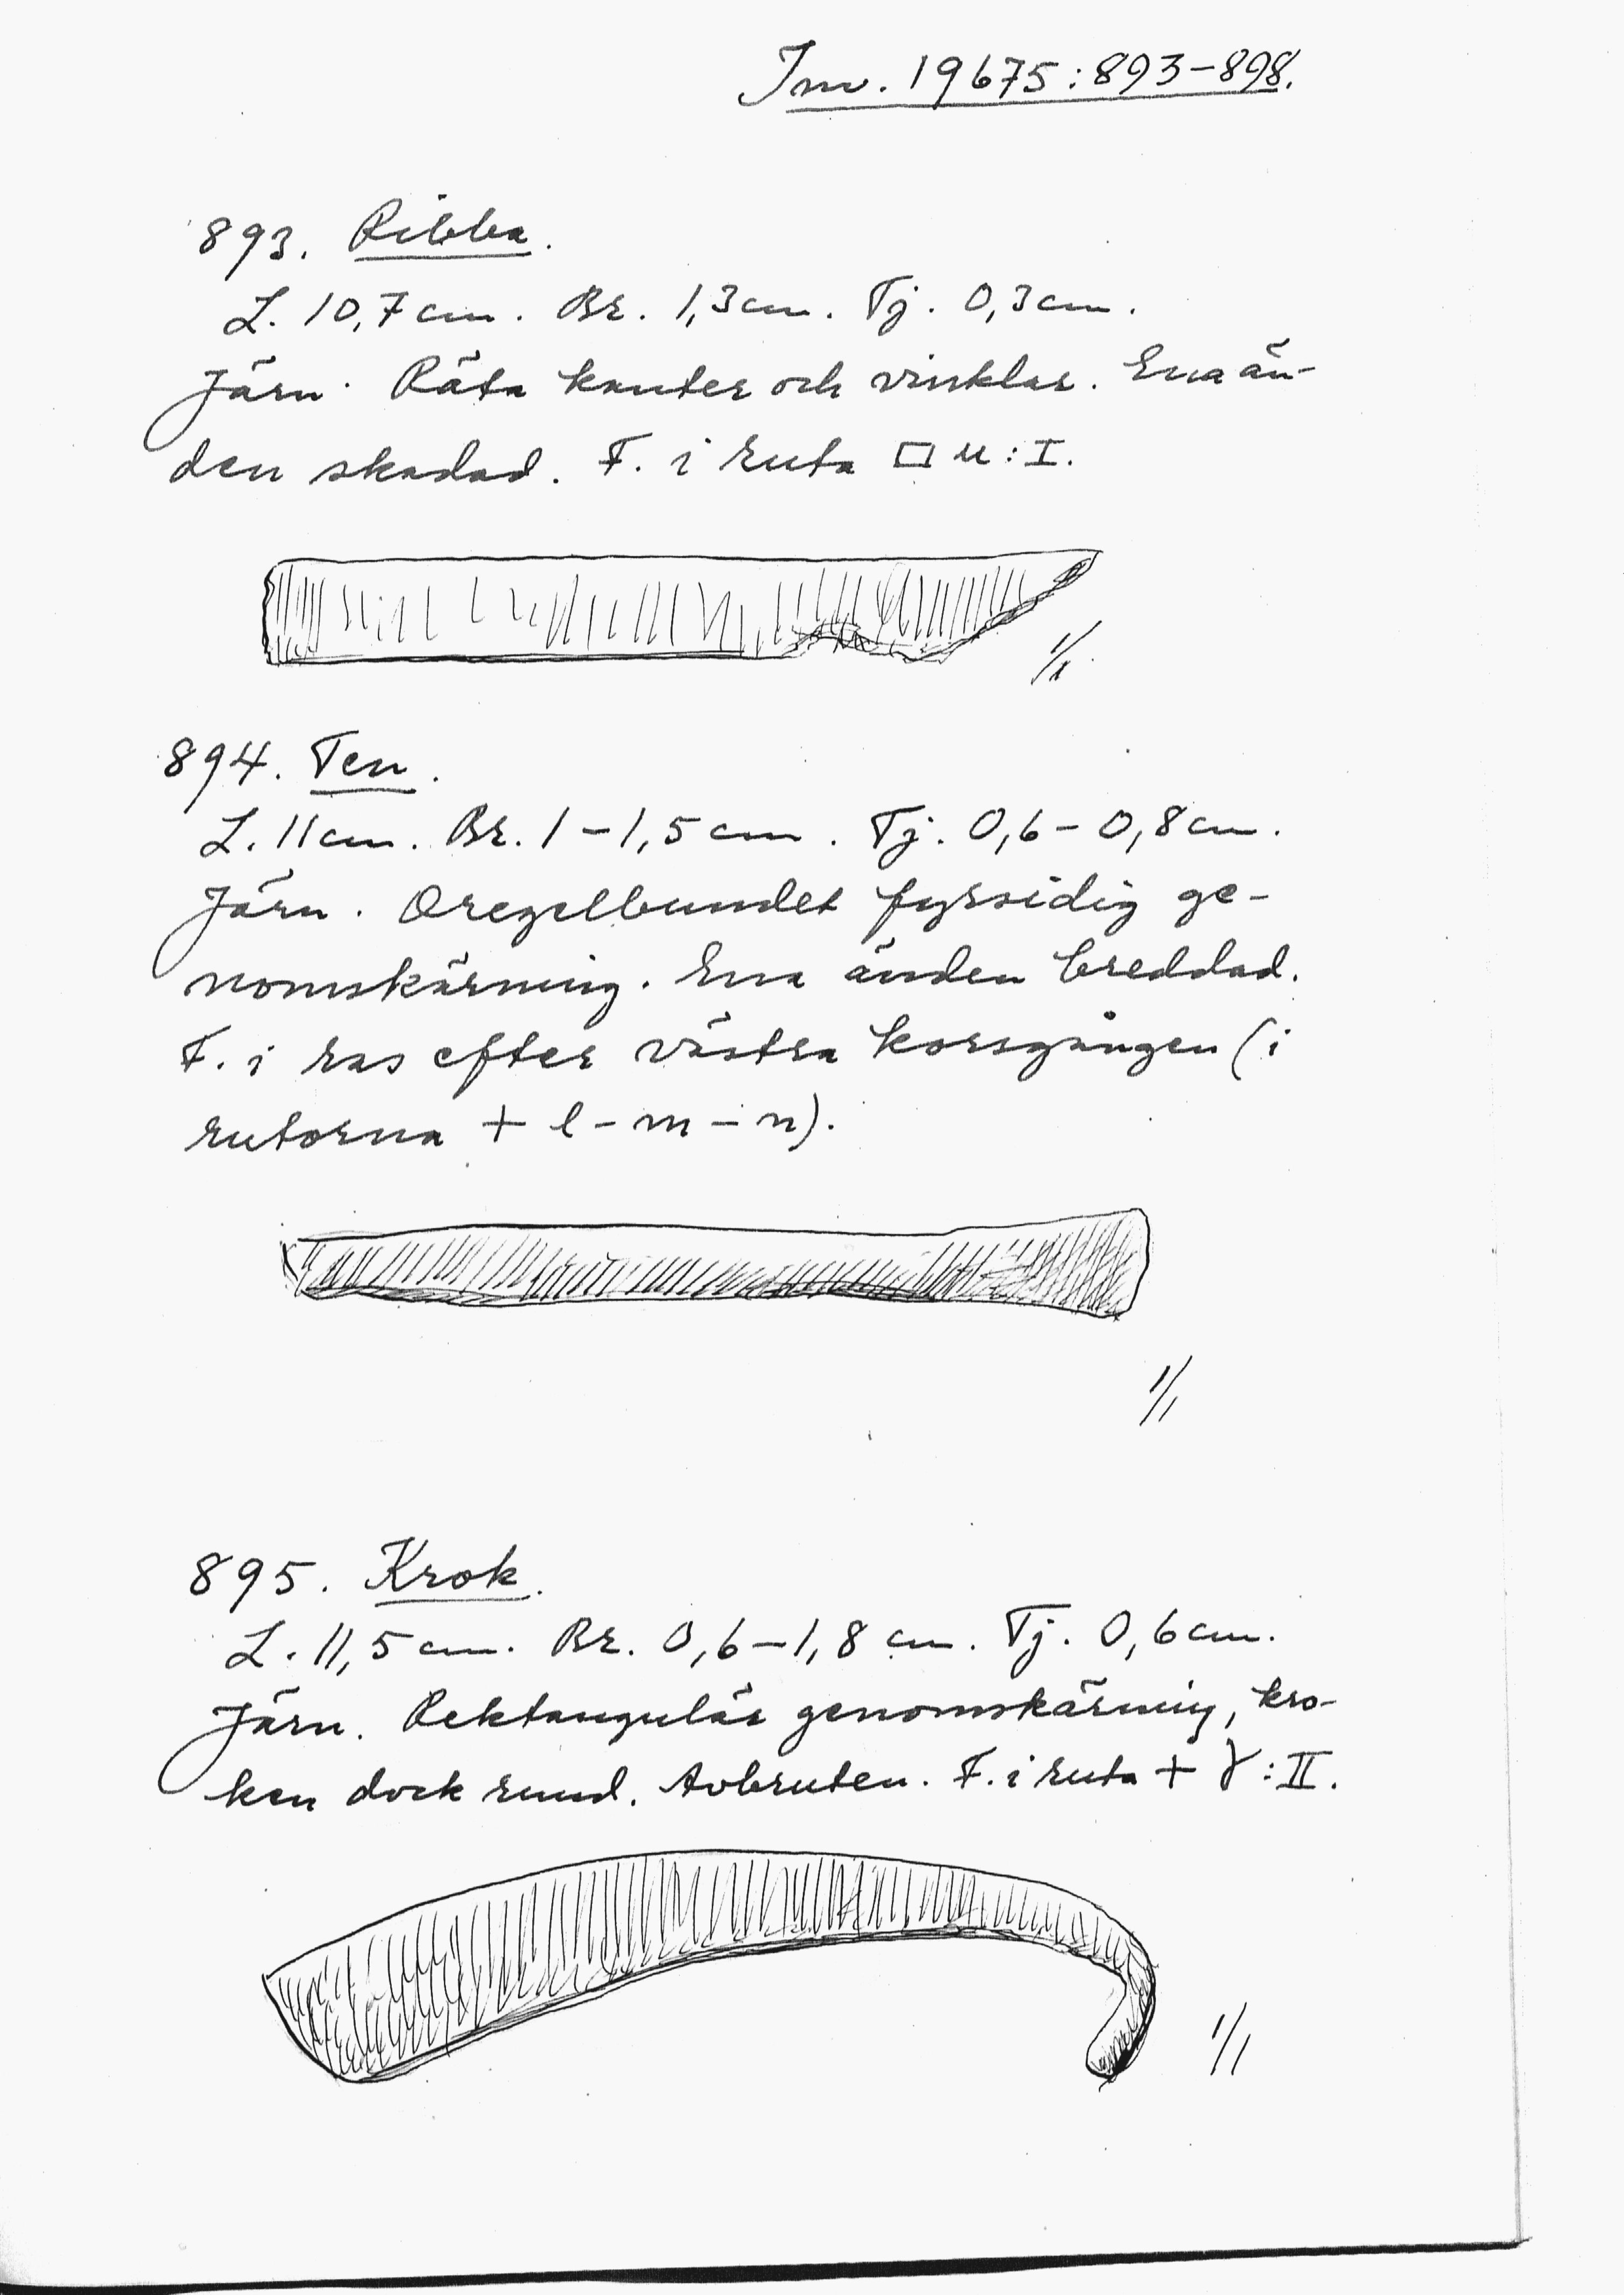 Inv. 19675:893-898.
893. Ribba.
L. 10,7 cm. Br. 1,3 cm. Tj. 0,3 cm.
Järn. Räta kanter och vinklar. Ena än-
den skadad. F. i ruta □ u:I.
1/1
894. Ten.
L. 11 cm. Br. 1-1,5 cm. Tj. 0,6-0,8 cm.
Järn. Oregelbundet fyrsidig ge-
nomskärning. Ena änden breddad.
F. i ras efter västra korsgången (i
rutorna + l-m-n).
1/1
895. Krok.
L. 11,5 cm. Br. 0,6-1,8 cm. Tj. 0,6 cm.
Järn. Rektangulär genomskärning, kro-
ken dock rund. Avbruten. F. i ruta + γ:II.
1/1